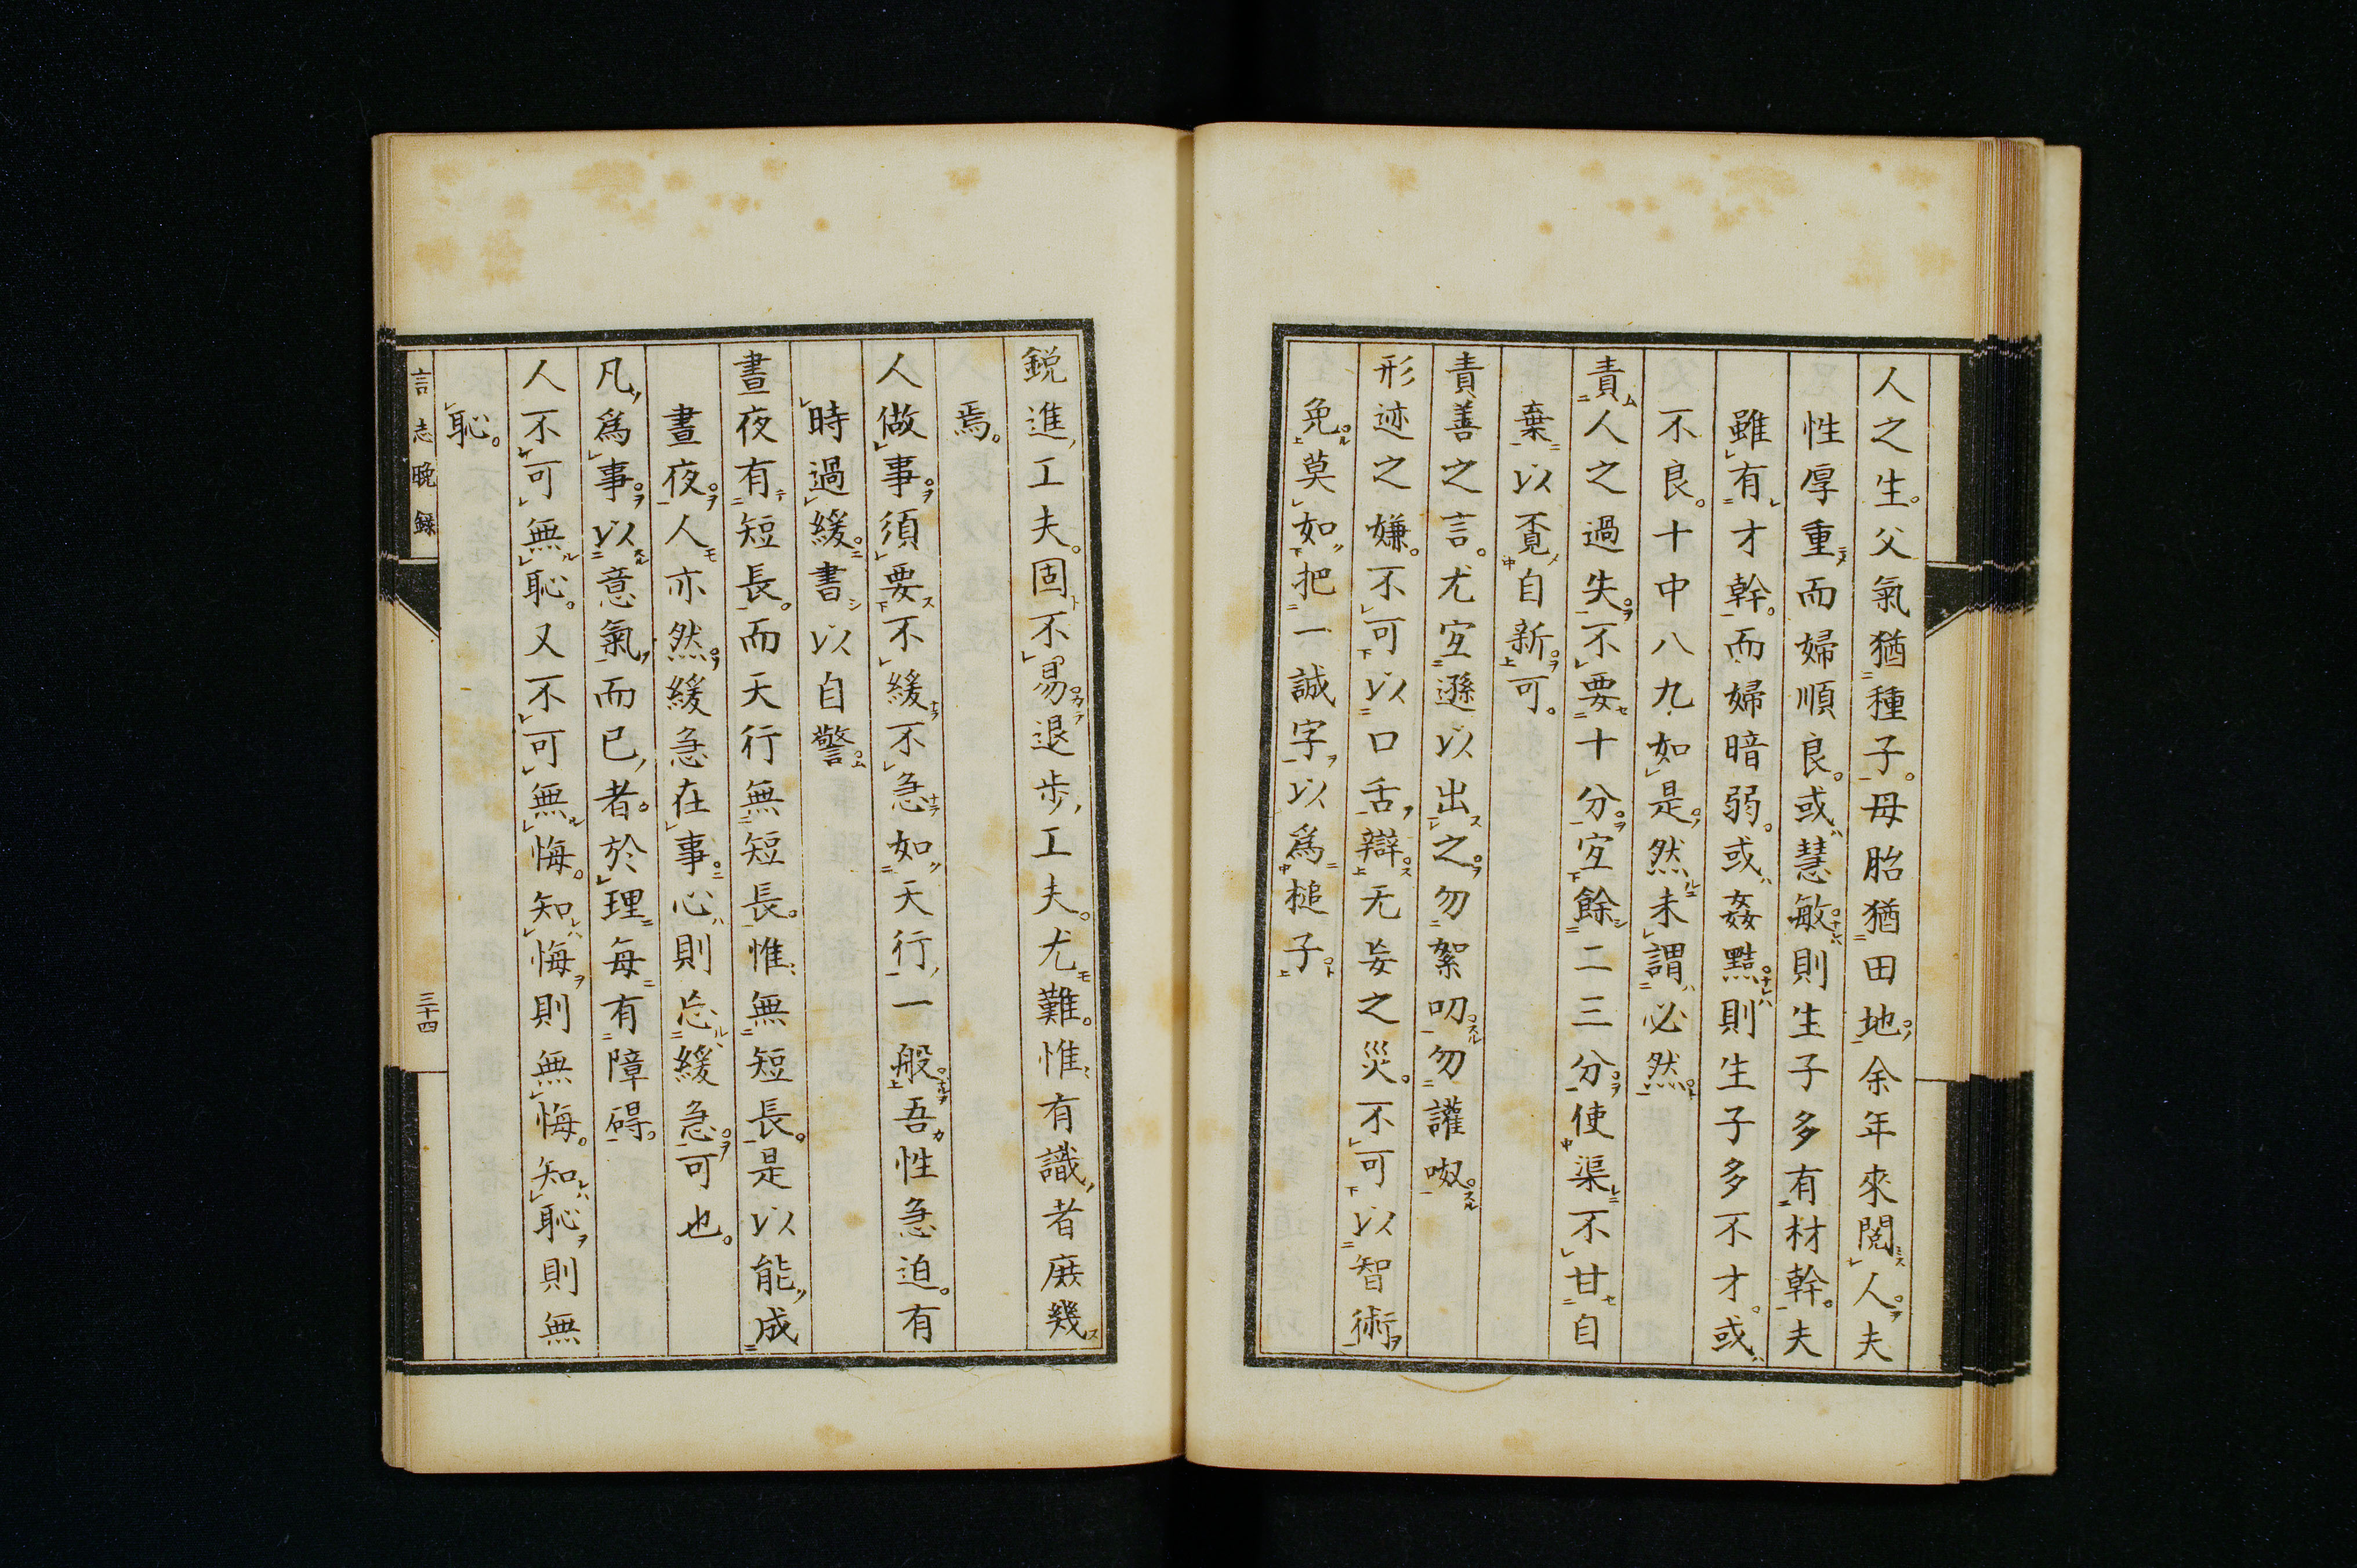 人之生。父氣猶種子。母胎猶田地。余年來閲人。夫
性厚重而婦順良。或慧敏則生子多有材幹。夫
雖有才幹。而婦暗弱。或姦黠則生子多不才。或
不良。十中八九如是。然未謂必然
責人之過失。不要十分。宜餘二三分。使渠不甘自
棄以覔自新可。
責善之言。尤宜遜以出之。勿絮叨勿讙呶
形迹之嫌。不可以口舌辯。无妄之災。不可以智術
免。莫如把一誠字以爲槌子
鋭進工夫。固不易。退歩工夫。尤難。惟有識者庶幾
焉。
人做事。須要不緩不急如天行一般。吾性急迫。有
時過緩。書以自警
晝夜有短長。而天行無短長。惟無短長。是以能成
晝夜。人亦然。緩急在事。心則忘緩急。可也。
凡爲事。以意氣而已者。於理毎有障碍。
人不可無恥。又不可無悔。知悔則無悔。知恥則無
恥。
言志晩録
三十四